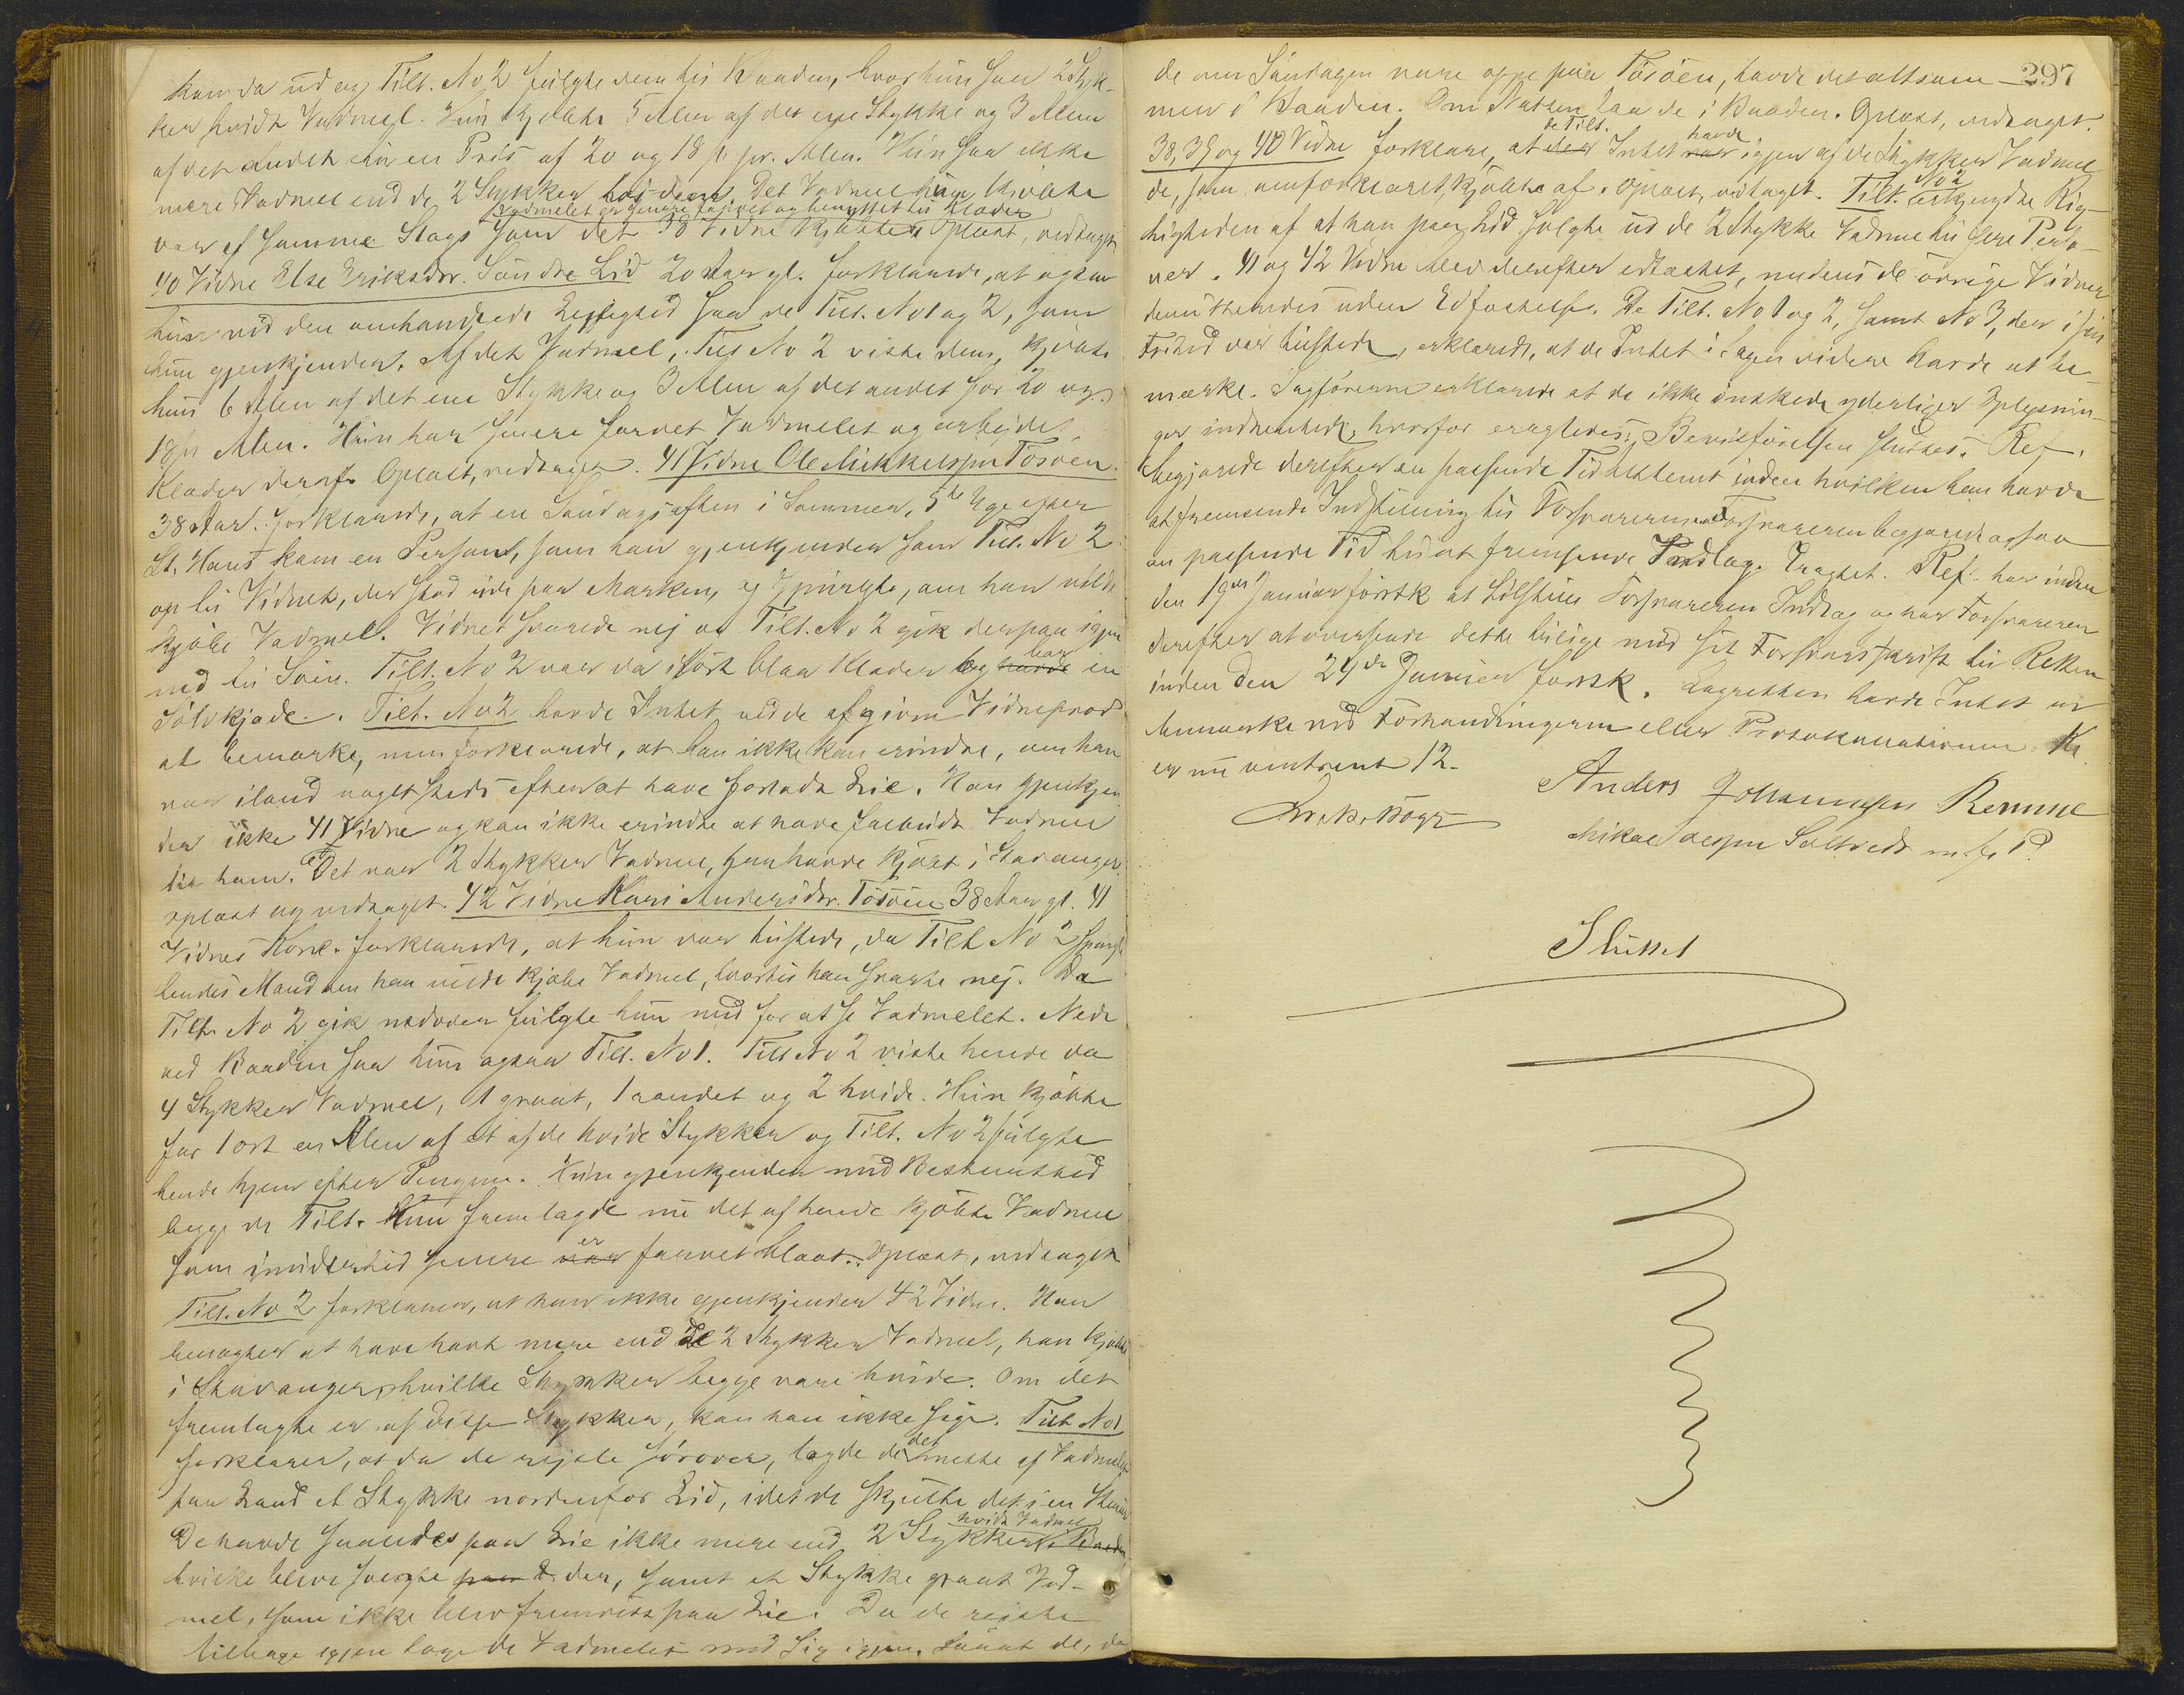 kom da ud og Tilt. No 2 fulgte dem til Baaden, hvor hun saa 2 Styk-
ker hvidt Vadmel. Hun kjøbte 5 Alen af det ene Stykke og 3 Alen
af det andet til en Pris af 20 og 18 pr. Alen. Hun saa ikke
mere Vadmel end de 2 Stykker hos dem. Det Vadmel hun kjøbte
Vadmelet er senere farvet og benyttet til Klæder
var af samme Slags som det 38 Vidne kjøbte. Oplæst, vedtaget
40 Vidne Else Eriksdtr. Søndre Lid 20 Aar gl. forklarede, at ogsaa
hun ved den omhandlede Leilighed saa de Tilt. No 1 og 2, som
hun gjenkjender. Af det Vadmel, Tilt No 2 viste dem, kjøbte
hun 6 Alen af det ene Stykke og 3 Alen af det andet for 20 og
18 Alen. Hun har senere farvet Vadmelet og arbeidet
Klæder deraf. Oplæst, vedtaget. 41 Vidne Ole Mikkelsen Tøsøen
38 Aar. forklarede, at en Søndagsaften i Sommer, 5te Uge efter
St. Hans kom en Person, som han gjenkjender som Tilt. No 2
op til Vidnet, der stod ude paa Marken, og spurgte, om han vilde
kjøbe Vadmel. Vidnet svarede nej og Tilt. No 2 gik derpaa igjen
ned til Søen. Tilt. No 2 var da iført blaa Klæder og havde bar en
Sølvkjæde. Tilt. No 2 havde Intet ved de afgivne Vidneprov
at bemærke, men forklarede, at han ikke kan erindre, om han
var iland noget Steds efter at have forladt Lie. Han gjenkjen
der ikke 41 Vidne og kan ikke erindre at have falbudt Vadmel
til ham. Det var 2 Stykker Vadmel, han havde kjøbt i Stavanger.
oplæst og vedtaget. 42 Vidne Kari Andersdtr. Tøsøen 38 Aar gl. 41
Vidnes Kone. forklarede, at hun var tilstede, da Tilt No 2 spurgte
hendes Mand om han vilde kjøbe Vadmel, hvortil han svarte nej. Da
Tilt. No 2 gik nedover fulgte hun med for at se Vadmelet. Nede
ved Baaden saa hun ogsaa Tilt. No 1. Tilt No 2 viste hende da
4 Stykker Vadmel, 1 graat, 1 randet og 2 hvide. Hun kjøbte
for 1 ort en Alen af et af de hvide Stykker og Tilt. No 2 fulgte
hende hjem efter Pengene. Hun gjenkjender med Bestemthed
begge de Tilt. Hun fremlagde nu det af hende kjøbte Vadmel
som imidlertid senere var er farvet blaat. Oplæst, vedtaget
Tilt. No 2 forklarer, at han ikke gjenkjender 42 Vidne. Han
benægter at have havt mere end de 2 Stykker Vadmel, han kjøbte
i Stavanger, hvilke Stykker begge vare hvide. Om det
fremlagte er af disse Stykker, kan han ikke sige. Tilt No 1
forklarer, at da de rejste sørover, lagde de det meste af Vadmelet
paa Land et Stykke nordenfor Lid, idet de skjulte det i en
De havde saaledes paa Lie ikke mere end 2 Stykker hvidt Vadmel
hvilke bleve solgte der, samt et Stykke graat Vad-
mel, som ikke blev fremvist paa Lie. Da de rejste
tilbage igjen toge de Vadmelet med sig igjen. Saa at de, da
297
de om Søndagen vare oppe paa Tøsøen, havde det altsammen
men i Baaden. Om Natten laa de i Baaden. Oplæst, vedtaget.
38, 39 og 40 Vidne forklare, at de Tilt. Intet havde igjen af de Stykker Vadmel
de, som omforklaret, kjøbte af. Oplæst, vedtaget. Tilt. No 2 erkjendte Rig-
tigheden af at han paa Lid solgte ud de 2 Stykke Vadmel til flere Perso-
ner. 41 og 42 Vidne blev derefter edtæstet, medens de øvrige Vidner
demitteredes uden Edfæstelse. De Tilt. No 1 og 2, samt No 3, der i sin
Frihed var tilstede, erklærede, at de Intet i Sagen videre havde at be-
mærke. Sagførerne erklærede at de ikke ønskede yderligere Oplysnin-
ger indhentede, hvorfor eragtedes: Bevisførelsen sluttes. Ref.
begjærede derefter en passende Tid bestemt inden hvilken han havde
at fremsende Indstilling til Forsvareren. Forsvareren begjærede ogsaa
en passende Tid til at fremsende Indlæg. Eragtet. Ref. har inden
den 19de Januar førstk at tilstille Forsvareren Indlæg og har Forsvareren
derefter at oversende dette tillige med sit Forsvarsskrift til Retten
inden den 29de Januar førstk. Lagretten havde Intet at
bemærke ved Forhandlingerne eller Protokollationen. Kl.
er nu omtrent 12.
Anders Johannesen Remme
Mikael Aesen Saltvedt m. f. P.
Sluttet